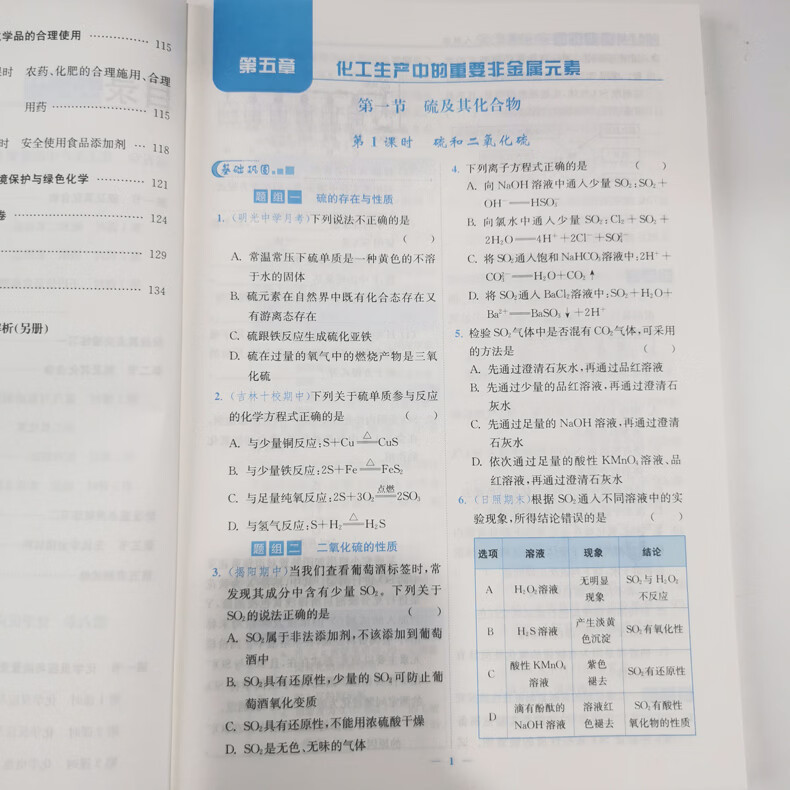 学品的合理使用 …………… 115
时 农药、化肥的合理施用、合理
用药 …………… 115
时 安全使用食品添加剂 … 118
境保护与绿色化学 ………… 121
卷 …………… 124
…………… 129
…………… 134
析(另册)
第五章 化工生产中的重要非金属元素
第一节 硫及其化合物
第1课时 硫和二氧化硫
基础巩固
题组一 硫的存在与性质
1. (明光中学月考)下列说法不正确的是
( )
A. 常温常压下硫单质是一种黄色的不溶
于水的固体
B. 硫元素在自然界中既有化合态存在又
有游离态存在
C. 硫跟铁反应生成硫化亚铁
D. 硫在过量的氧气中的燃烧产物是三氧
化硫
2. (吉林十校期中)下列关于硫单质参与反应
的化学方程式正确的是 ( )
A. 与少量铜反应:S+Cu══(△)CuS
B. 与少量铁反应:2S+Fe══(△)FeS₂
C. 与足量纯氧反应:2S+3O₂══(点燃)2SO₃
D. 与氢气反应:S+H₂══(△)H₂S
题组二 二氧化硫的性质
3. (揭阳期中)当我们查看葡萄酒标签时,常
发现其成分中含有少量 SO₂。下列关于
SO₂的说法正确的是 ( )
A. SO₂属于非法添加剂,不该添加到葡萄
酒中
B. SO₂具有还原性,少量的 SO₂可防止葡
萄酒氧化变质
C. SO₂具有还原性,不能用浓硫酸干燥
D. SO₂是无色、无味的气体
4. 下列离子方程式正确的是 ( )
A. 向 NaOH 溶液中通入少量 SO₂:SO₂+
OH⁻══HSO₃⁻
B. 向氯水中通入少量 SO₂:Cl₂+SO₂+
2H₂O══4H⁺+2Cl⁻+SO₄²⁻
C. 将 SO₂通入饱和 NaHCO₃溶液中:2H⁺+
CO₃²⁻══H₂O+CO₂↑
D. 将 SO₂通入 BaCl₂溶液中:SO₂+H₂O+
Ba²⁺══BaSO₃↓+2H⁺
5. 检验 SO₂气体中是否混有 CO₂气体,可采用
的方法是 ( )
A. 先通过澄清石灰水,再通过品红溶液
B. 先通过少量的品红溶液,再通过澄清石
灰水
C. 先通过足量的 NaOH 溶液,再通过澄清
石灰水
D. 依次通过足量的酸性 KMnO₄溶液、品
红溶液,再通过澄清石灰水
6. (日照期末)根据 SO₂通入不同溶液中的实
验现象,所得结论错误的是 ( )
选项 溶液 现象 结论
A H₂O₂溶液 无明显现象 SO₂与 H₂O₂不反应
B H₂S 溶液 产生淡黄色沉淀 SO₂有氧化性
C 酸性 KMnO₄溶液 紫色褪去 SO₂有还原性
D 滴有酚酞的 NaOH 溶液 溶液红色褪去 SO₂有酸性氧化物的性质
— 1 —